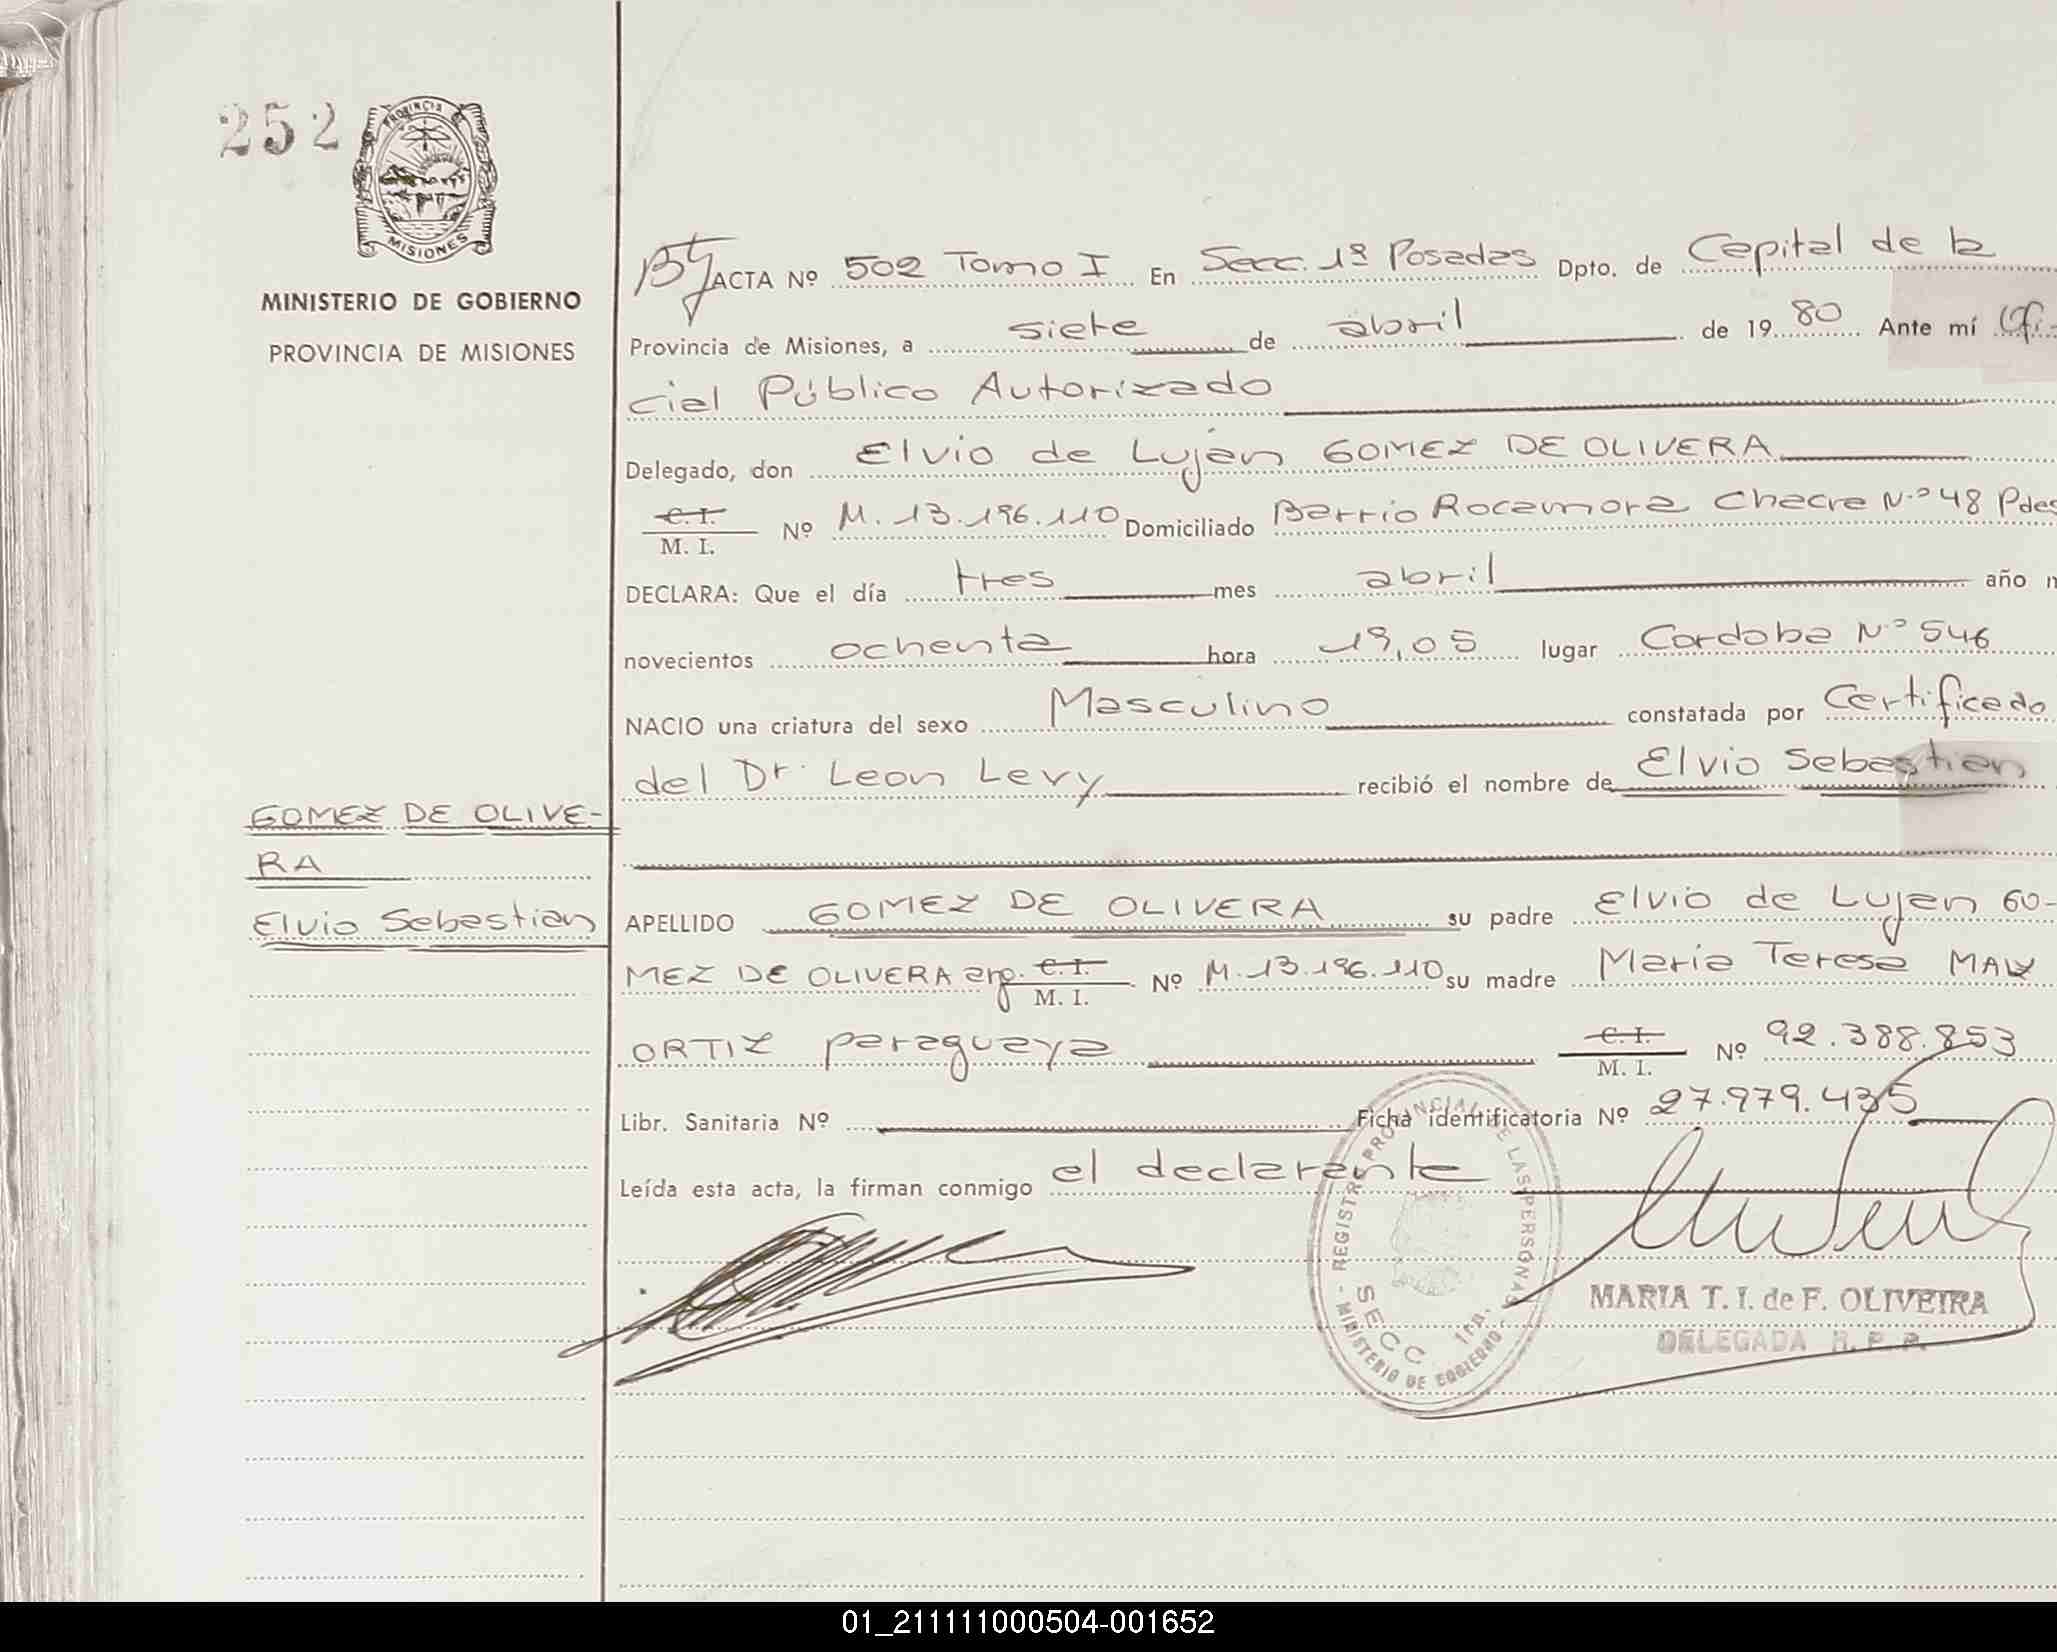 252
PROVINCIA
MISIONES
MINISTERIO DE GOBIERNO
PROVINCIA DE MISIONES
ACTA Nº 502 Tomo I En Secc. 1ª Posadas Dpto. de Capital de la
Provincia de Misiones, a siete de abril de 1980 Ante mí Ofi-
cial Público Autorizado
Delegado, don Elvio de Lujan GOMEZ DE OLIVERA
C. I.
M. I. Nº M. 13.196.110 Domiciliado Barrio Rocamora Chacra Nº 48 Pdas
DECLARA: Que el día tres mes abril año m
novecientos ochenta hora 19,05 lugar Cordoba Nº 546
NACIO una criatura del sexo Masculino constatada por Certificado
del Dr. Leon Levy recibió el nombre de Elvio Sebastian
GOMEZ DE OLIVE-
RA
Elvio Sebastian
APELLIDO GOMEZ DE OLIVERA su padre Elvio de Lujan GO-
MEZ DE OLIVERA arg. C. I.
M. I. Nº M. 13.196.110 su madre Maria Teresa
ORTIZ paraguaya C. I.
M. I. Nº 92.388.853
Libr. Sanitaria Nº Ficha identificatoria Nº 27.979.435
Leída esta acta, la firman conmigo el declarante
REGISTRO PROVINCIAL DE LAS PERSONAS - MINISTERIO DE GOBIERNO -
SECC 1ra.
MARIA T. I. de F. OLIVEIRA
DELEGADA R. P. P.
01_211111000504-001652